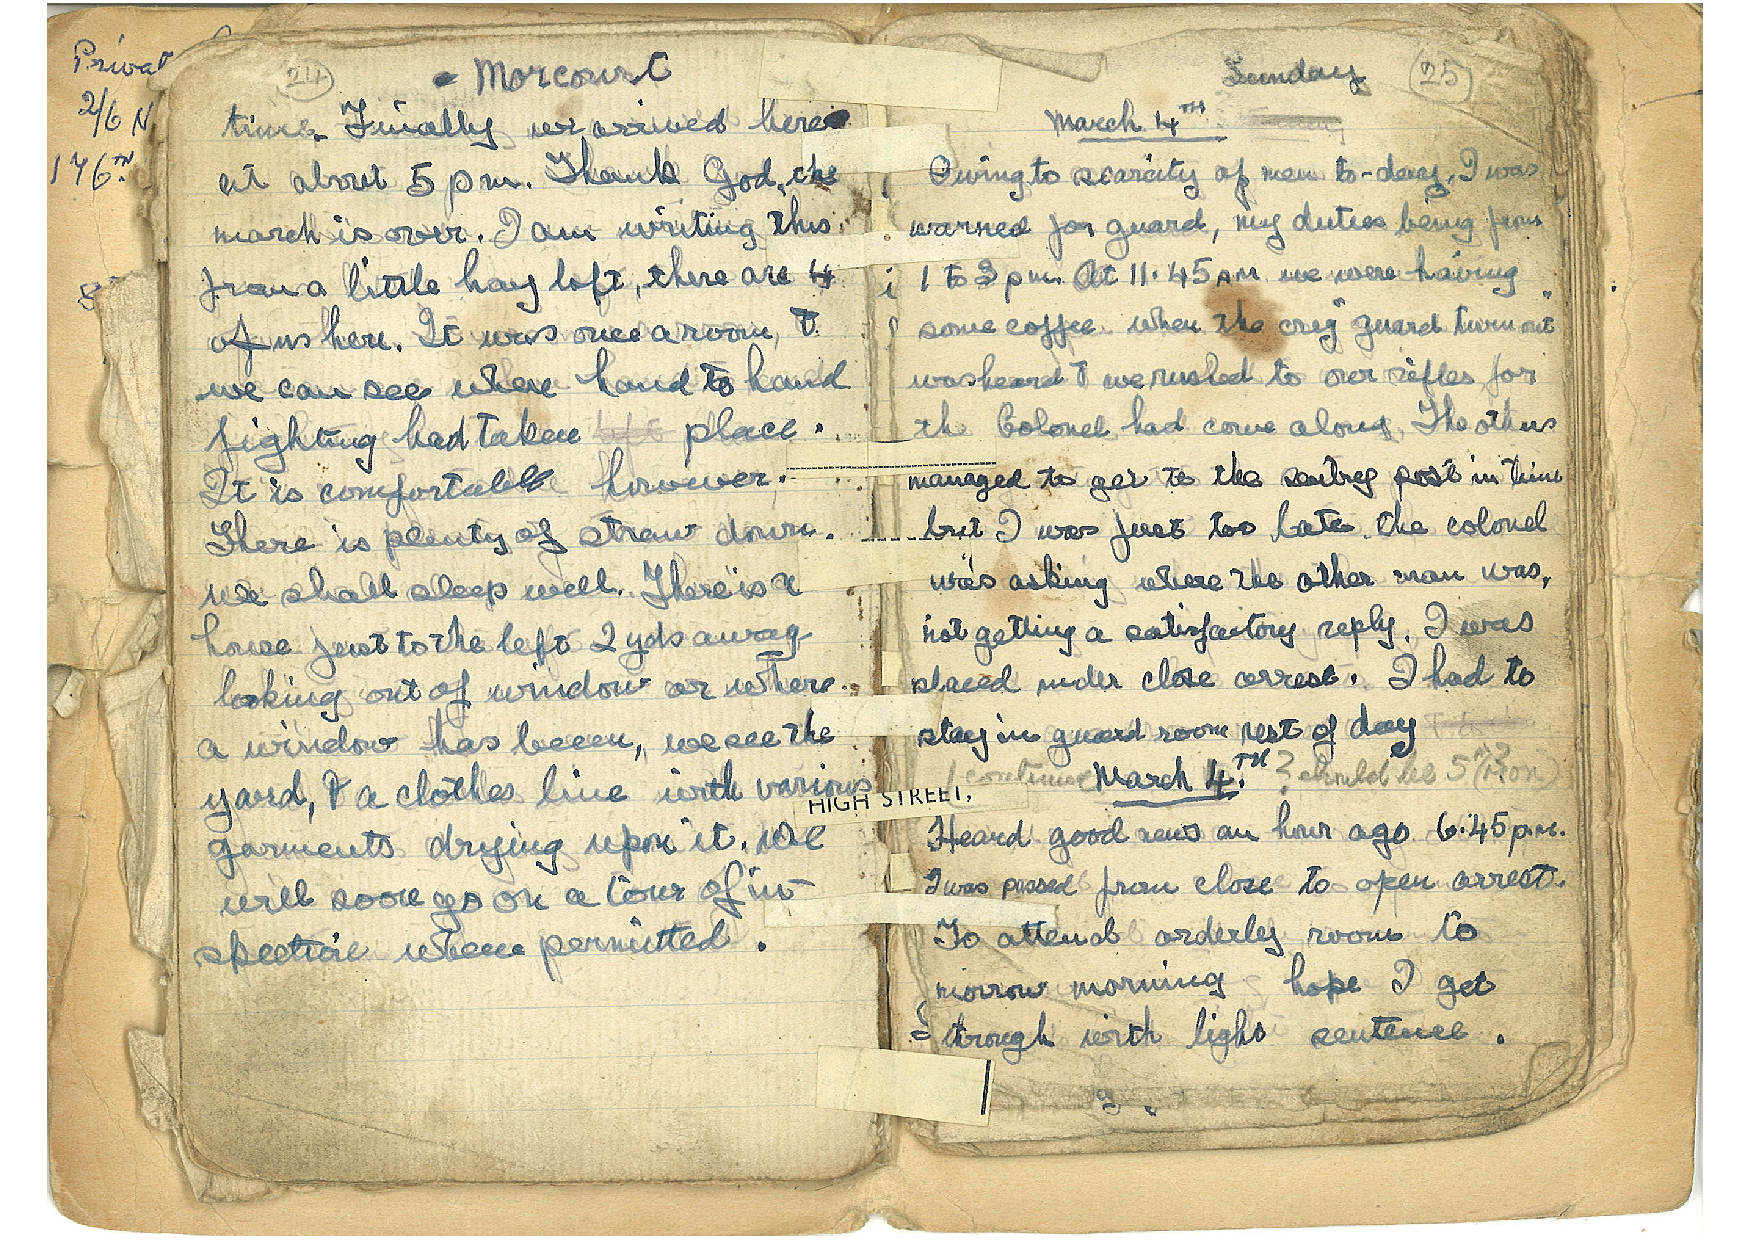 Privat
2/6 N
176TH
24
Morcourt
time. Finally we arrived here
at about 5 pm. Thank God, the
march is over. I am writing this
from a little hay loft, there are 4
of us here. It was once a room, &
we can see where hand to hand
fighting had taken left place.
It is comfortable however.
There is plenty of straw down.
we shall sleep well. There is a
house just to the left 2 yds away
looking out of window or where
a window has beeen, we see the
yard, & a clothes line with various
garments drying upon it. We
will soon go on a tour of in-
spection where permitted.
Sunday 25
March 4TH
Owing to scarcity of men to-day, I was
warned for guard, my duties being from
1 to 3 pm. At 11.45 AM we were having
some coffee when the cry "guard turn out"
was heard & we rushed to our rifles for
the Colonel had come along. The others
managed to get to the sentry post in time
but I was just too late. the colonel
was asking where the other man was,
not getting a satisfactory reply. I was
placed under close arrest. I had to
stay in guard room rest of day
continue March 4.TH ? should be 5TH (Mon)
HIGH STREET,
Heard good news an hour ago 6.45 p.m.
I was passed from close to open arrest.
To attend orderly room to
morrow morning hope I get
through with light sentence.